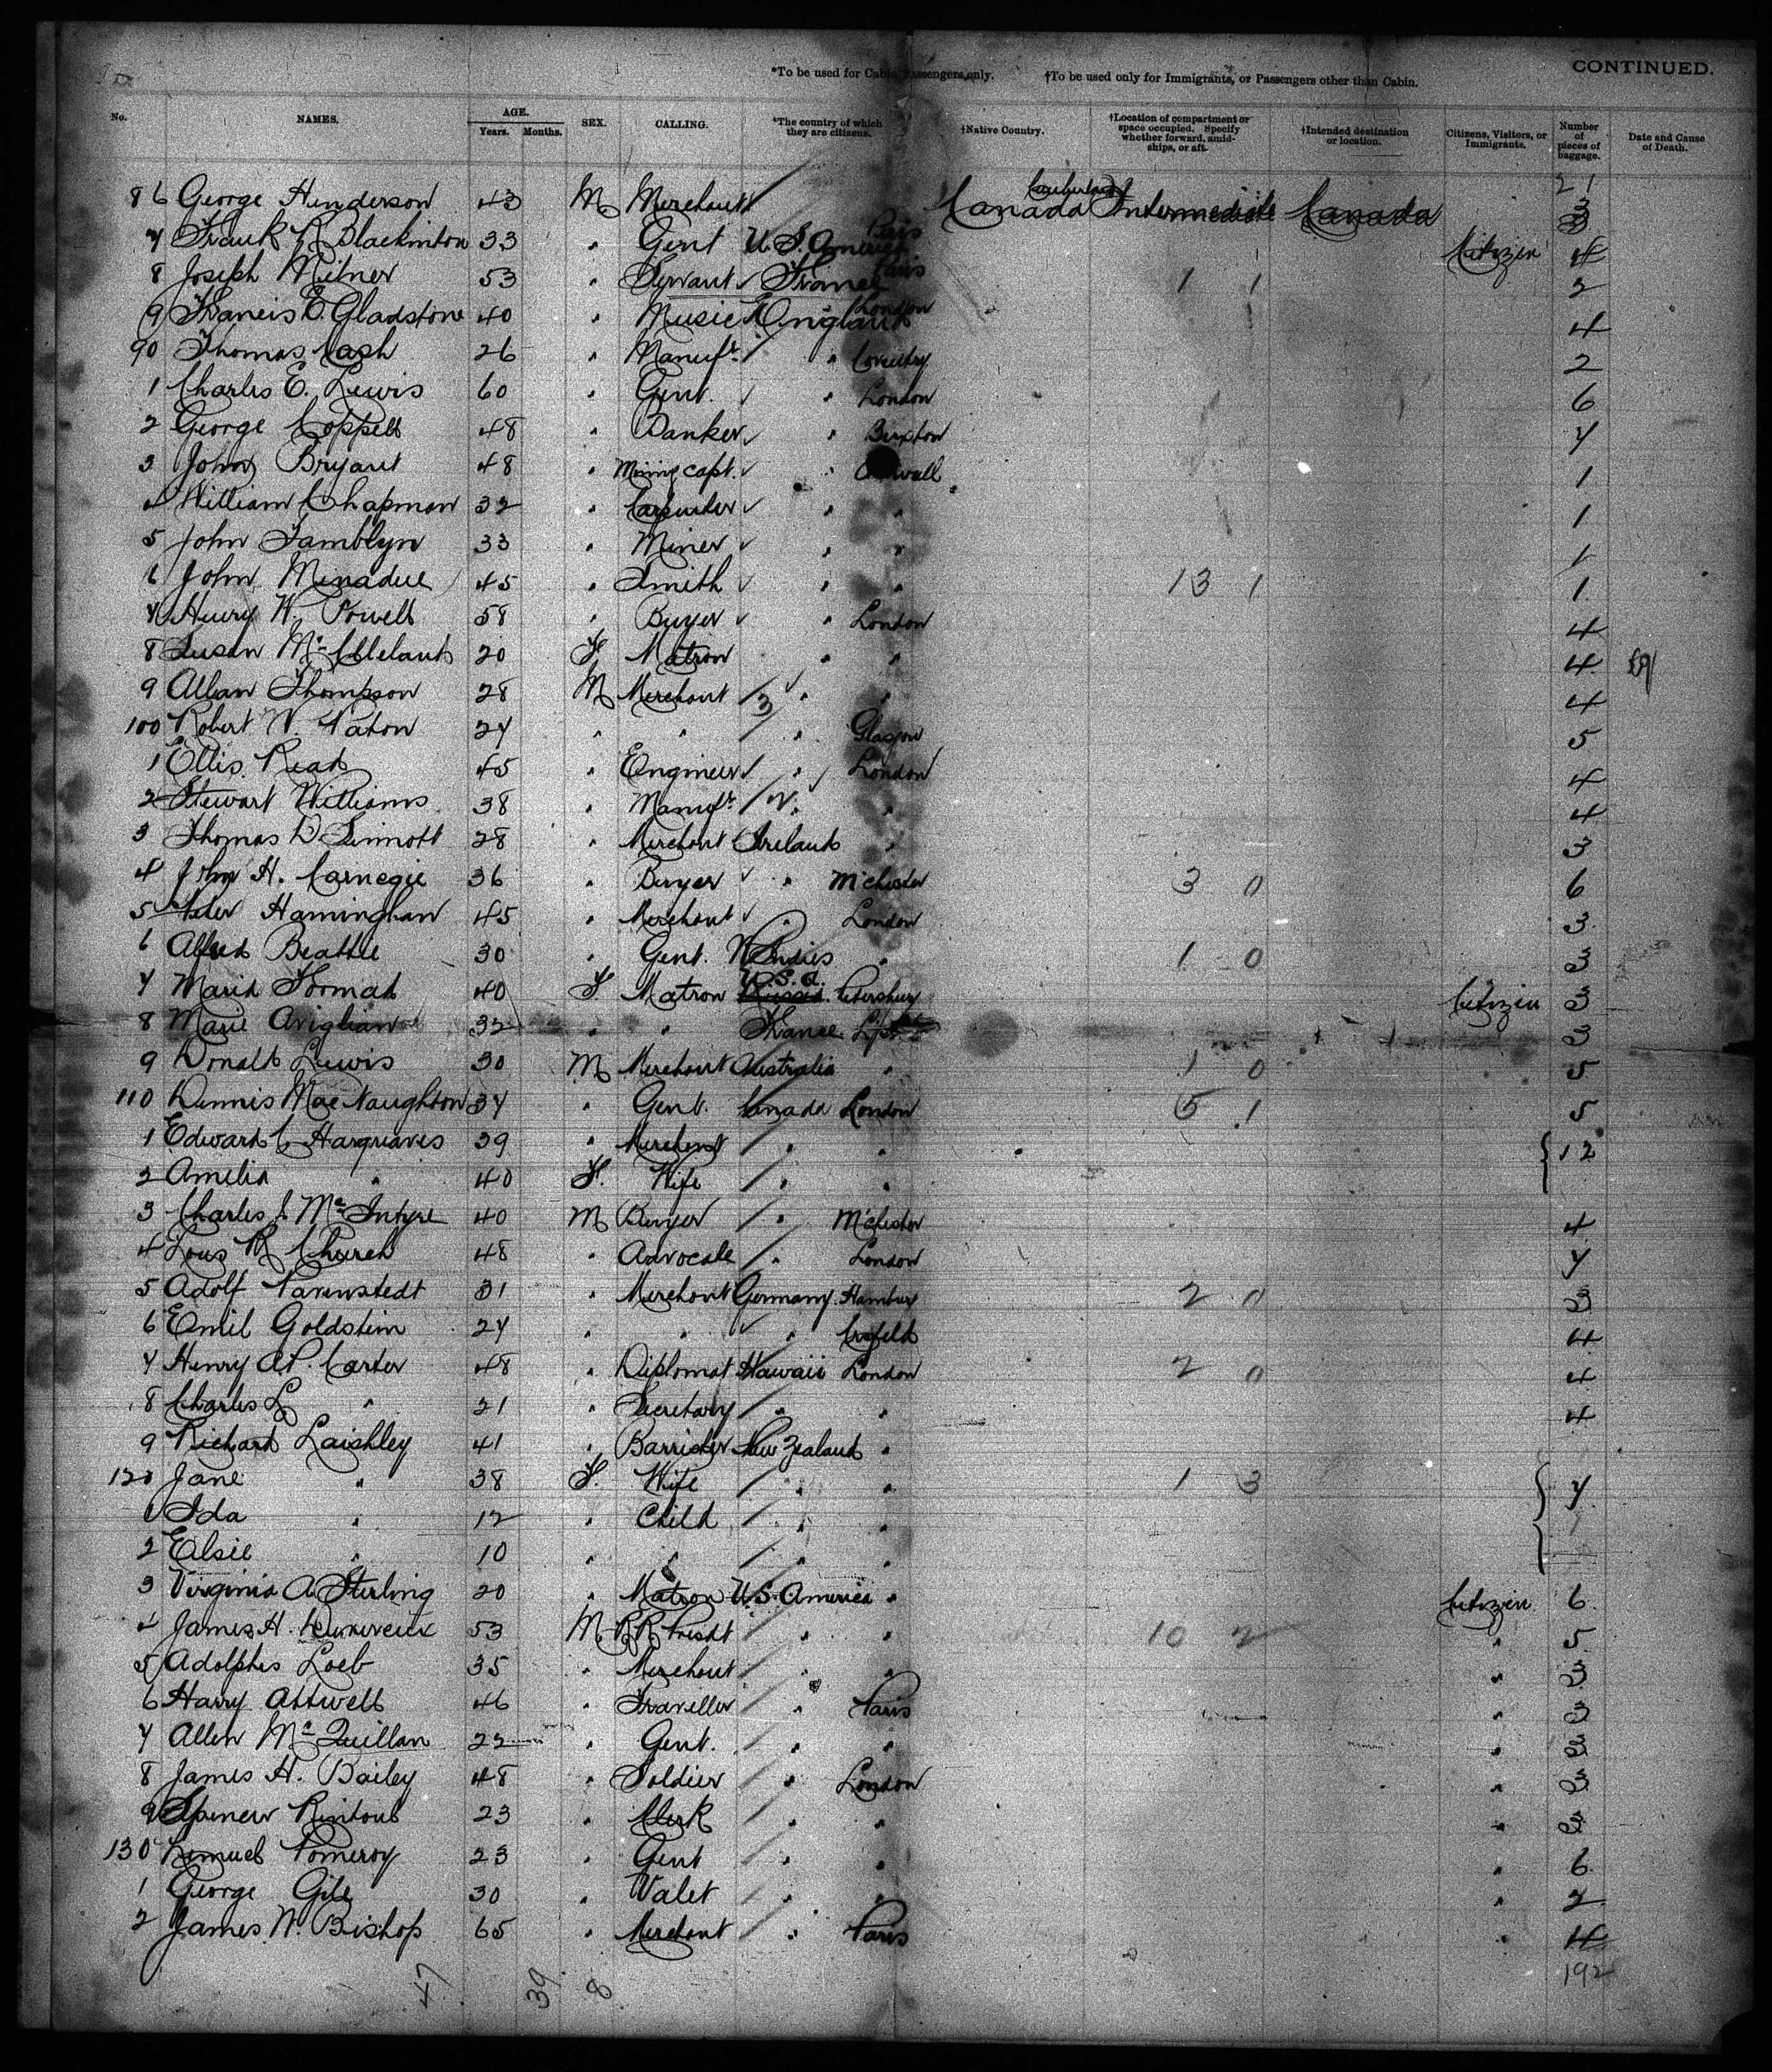 *To be used for Cabin Passengers only. †To be used only for Immigrants, or Passengers other than Cabin. CONTINUED.
No. NAMES. AGE. Years. Months. SEX. CALLING. *The country of which they are citizens. †Native Country. †Location of compartment or space occupied. Specify whether forward, amidships, or aft. †Intended destination or location. Citizens, Visitors, or Immigrants. Number of pieces of baggage. Date and Cause of Death.
86 George Henderson 43 M Merchant Canada Intermediate Canada 3
7 Frank R Blackinton 33 " Gent U.S. America Paris Citizen 4
8 Joseph Milner 53 " Servant France Paris 1 1 2
9 Francis E. Gladstone 40 " Music England London 4
90 Thomas Cash 26 " Manufr. " Coventry 2
1 Charles E. Lewis 60 " Gent. " London 6
2 George Coppell 48 " Banker " Buxton 7
3 John Bryant 48 " Mining capt. " 1
4 William Chapman 32 " Carpenter " " 1
5 John Tamblyn 33 " Miner " " 1
6 John Minadue 45 " Smith " " 13 1 1
7 Henry W. Powell 58 " Buyer " London 4
8 Susan McClelland 20 F Matron " " 4
9 Allan Thompson 28 M Merchant 3 " " 4
100 Robert W. Paton 27 " " " Glasgow 5
1 Ellis Read 45 " Engineer " London 4
2 Stewart Williams 38 " Manufr. " " 4
3 Thomas D Sinnott 28 " Merchant Ireland " 3
4 John H. Carnegie 36 " Buyer " M'chester 3 0 6
5 Peter Haminghan 45 " Merchant " London 3
6 Alfred Beattie 30 " Gent. W Indies " 1 0 3
7 Maria 40 F. Matron U.S.A. Russia Petersburg Citizen 3
8 Marie 32 " " France 3
9 Donald Lewis 30 M Merchant Australia " 1 0 5
110 Dennis MacNaughton 37 " Gent. Canada London 5 1 5
1 Edward C Hargreaves 39 " Merchant " " 12
2 Amelia " 40 F. Wife " "
3 Charles McIntyre 40 M Buyer " M'chester 4
4 Lous R Church 48 " Advocate " London 7
5 Adolf Pavenstedt 31 " Merchant Germany Hamburg 2 0 3
6 Emil Goldstein 27 " " " Crefeld 4
7 Henry A.P. Carter 48 " Diplomat Hawaii London 2 0 4
8 Charles L " 21 " Secretary " " 4
9 Richard Laishley 41 " Barrister New Zealand "
120 Jane " 38 F. Wife " " 1 3 7
1 Ida " 12 " Child " "
2 Elsie " 10 " " " "
3 Virginia A Sterling 20 " Matron U.S. America " Citizen 6
4 James H. 53 M RR Presdt " " 10 2 " 5
5 Adolphis Loeb 35 " Merchant " " " 3
6 Harry Attwell 46 " Traveller " Paris " 3
7 Allen McQuillan 22 " Gent. " " " 3
8 James H. Bailey 48 " Soldier " London " 3
9 Spencer Rintoul 23 " Clerk " " " 3
130 Lemuel Pomeroy 23 " Gent " " " 6
1 George Gile 30 " Valet " " " 2
2 James W. Bishop 65 " Merchant " Paris " 4
47 39 8 192